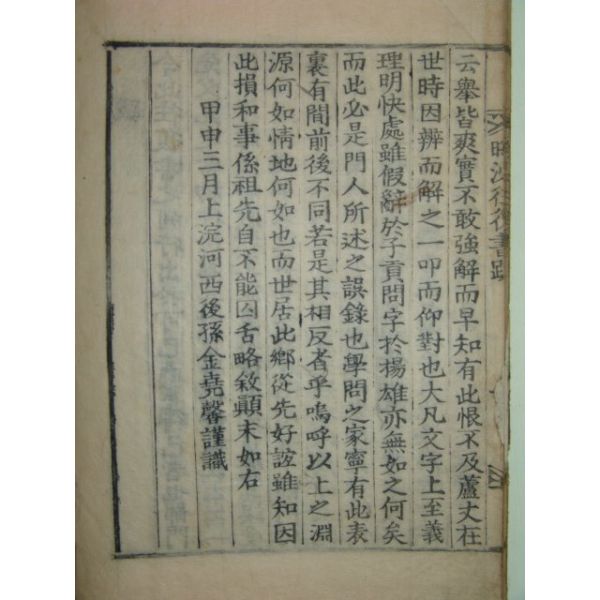 時沒往復書跋
云舉皆爽實不敢強解而早知有此恨不及蘆丈在
世時因辨而解之一叩而仰對也大凡文字上至義
理明快處雖假辭於子貢問字於楊雄亦無如之何矣
而此必是門人所述之誤錄也學問之家寧有此表
裏有間前後不同若是其相反者乎嗚呼以上之淵
源何如情地何如也而世居此鄉從先好誼雖知因
此損和事係祖先自不能囚舌略敘顚末如右
甲申三月上浣河西後孫金堯馨謹識